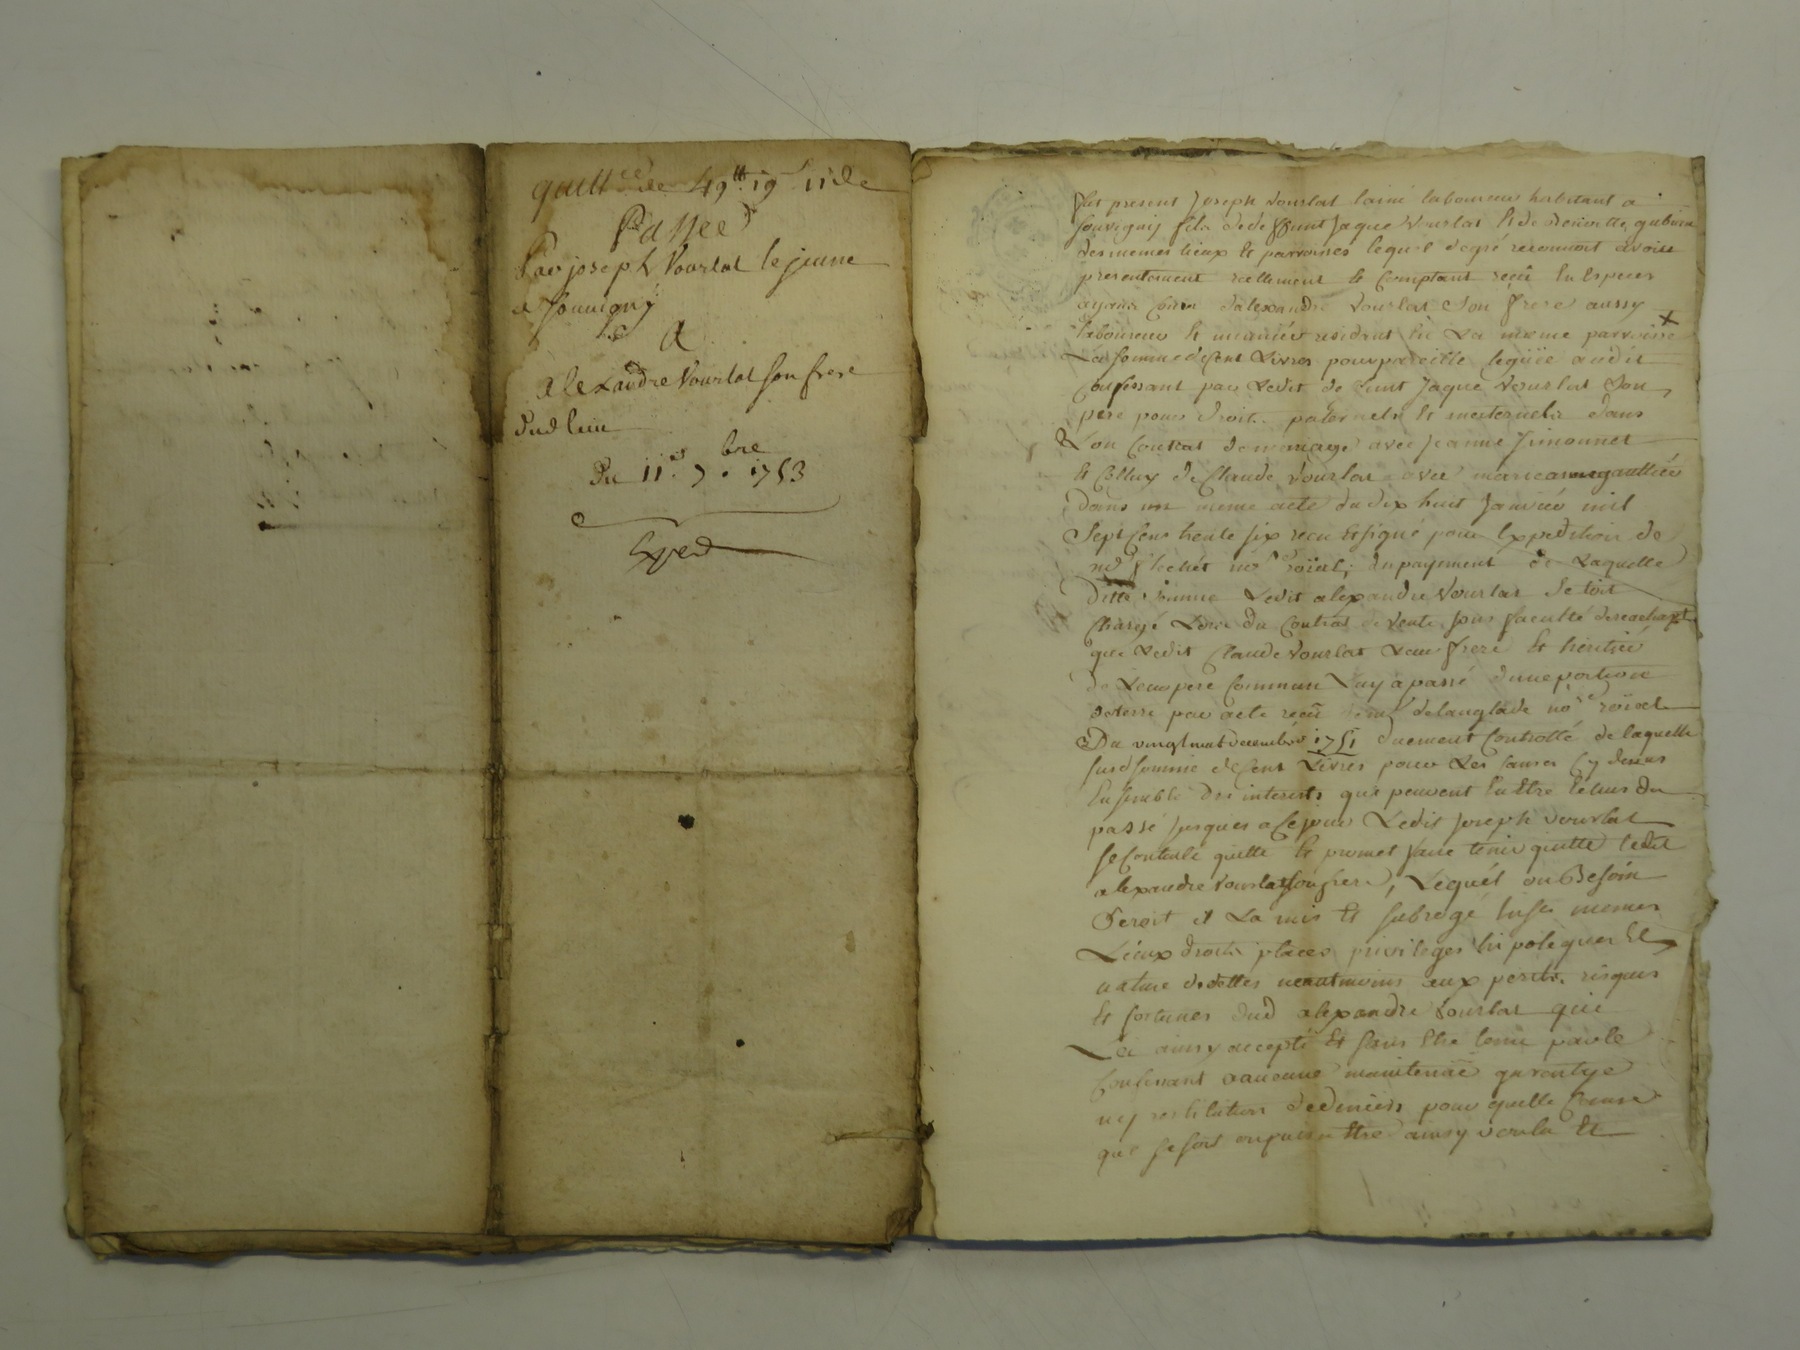 quitt.ce de 49 tt 19 s 11 d
Passee
Par joseph Vourlat le jeune
de Souvigny
A
alexandre Vourlat son frere
dud lieu
Du 11.e 7.bre 1753
Exped
fut present Joseph Vourlat lainé laboureur habitant a
Souvigny fils de deffunt Jaque Vourlat et de
desmemes lieux et parroisses lequel degré reconnoit avoir
presentement reellement et comptant receu en especes
ayant cours dalexandre Vourlat son frere aussy
laboureur et residant en La meme parroisse
La somme de Cent Livres pour pareille leguée audit
Confessant par Ledit defunt Jaque Vourlat son
pere pour droits paternels et maternels dans
son Contrat de mariage avec Jeanne Simonnet
et Celluy de Claude Vourlat avec marieanne gaultier
dans un meme acte du dix huit Janvier mil
Sept Cens trente six receu et signé pour Expedition de
no.re roïal, du payement de Laquelle
ditte somme Ledit alexandre Vourlat se toit
Chargé Lors du Contrat de vente sous faculté de reachapt
que Ledit Claude Vourlat Leur frere et heritier
de Leur pere Commun Luy a passé dune portion
deterre par acte receu delanglade no.re roïal
Du vingt huit decembre 1751 duement Controllé de laquelle
susd somme de Cent Livres pour Les Causes Cy dessus
Ensemble des interests que peuvent En Etre Echus du
passé jusques a Ce jour Ledit Joseph Vourlat
se Contente quitte et promet faire tenir quitte ledit
alexandre Vourlat son frere, Lequel au Besoin
Seroit et La mis et subrogé En ses memes
Lieux droits places privileges hipoteques Et
nature de dettes neantmoins aux perils risques
et fortunes dud alexandre Vourlat qui
La ainsy accepté et sans Etre tenu par le
Confessant a aucune maintenüe garentye
ny restitution de deniers pour quelle Cause
que se soit ou puisse Etre ainsy voulu Et